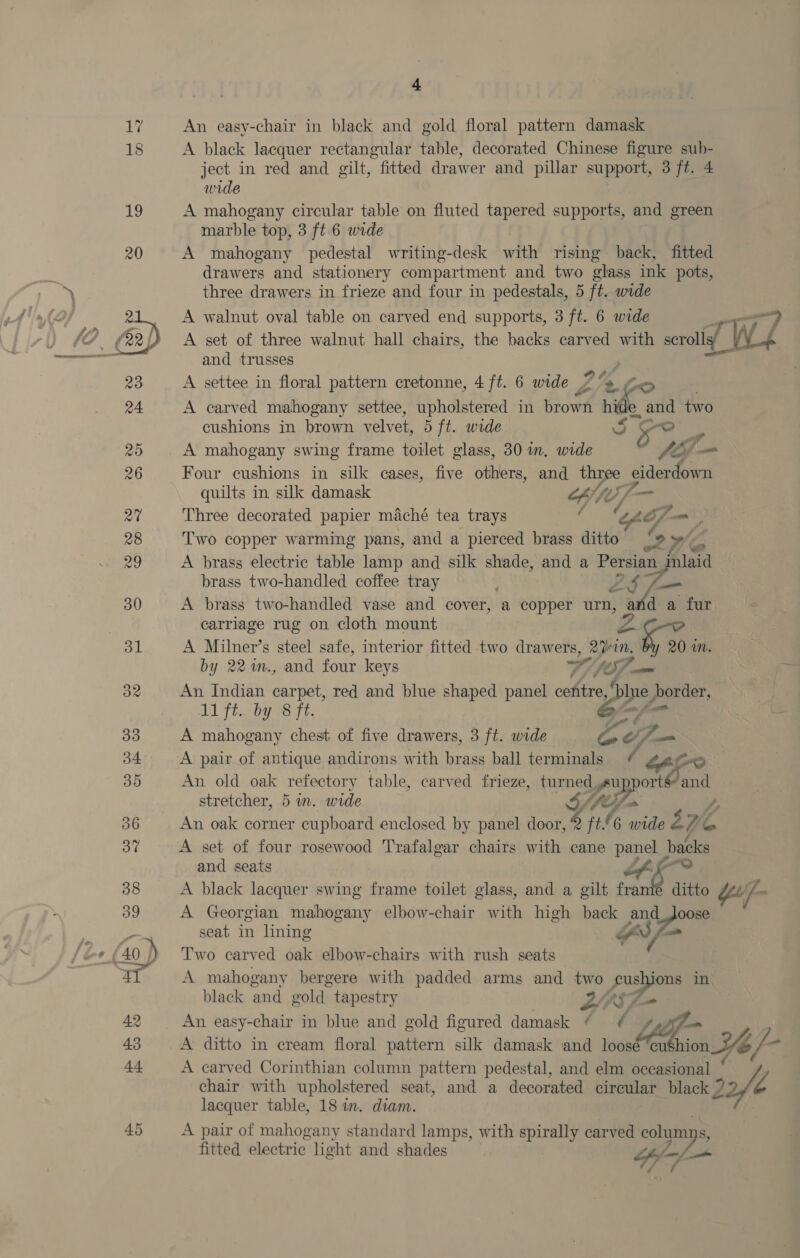 4
17 An easy-chair in black and gold floral pattern damask
18 A black lacquer rectangular table, decorated Chinese figure sub-
ject in red and gilt, fitted drawer and pillar support, 3 ft. 4
wide
19 A mahogany circular table on fluted tapered supports, and green
marble top, 3 ft 6 wide
20 A mahogany pedestal writing-desk with rising back, fitted
drawers and stationery compartment and two glass ink pots,
three drawers in frieze and four in pedestals, 5 ft. wide
21 A walnut oval table on carved end supports, 3 ft. 6 wide
22 A set of three walnut hall chairs, the backs carved with scrolls
and trusses
23 A settee in floral pattern cretonne, 4 ft. 6 wide
24 A carved mahogany settee, upholstered in brown hide and two
cushions in brown velvet, 5 ft. wide
25 A mahogany swing frame toilet glass, 30 in. wide
26 Four cushions in silk cases, five others, and three eiderdown
quilts in silk damask
27 Three decorated papier mâché tea trays
28 Two copper warming pans, and a pierced brass ditto
29 A brass electric table lamp and silk shade, and a Persian inlaid
brass two-handled coffee tray
30 A brass two-handled vase and cover, a copper urn, and a fur
carriage rug on cloth mount
31 A Milner's steel safe, interior fitted two drawers, 27 in. by 20 in.
by 22 in., and four keys
32 An Indian carpet, red and blue shaped panel centre, blue border,
11 ft. by 8 ft.
33 A mahogany chest of five drawers, 3 ft. wide
34 A pair of antique andirons with brass ball terminals
35 An old oak refectory table, carved frieze, turned supports and
stretcher, 5 in. wide
36 An oak corner cupboard enclosed by panel door, 2 ft. 6 wide
37 A set of four rosewood Trafalgar chairs with cane panel backs
and seats
38 A black lacquer swing frame toilet glass, and a gilt frame ditto
39 A Georgian mahogany elbow-chair with high back and loose
seat in lining
40 Two carved oak elbow-chairs with rush seats
41 A mahogany bergere with padded arms and two cushions in
black and gold tapestry
42 An easy-chair in blue and gold figured damask
43 A ditto in cream floral pattern silk damask and loose cushion
44 A carved Corinthian column pattern pedestal, and elm occasional
chair with upholstered seat, and a decorated circular black
lacquer table, 18 in. diam.
45 A pair of mahogany standard lamps, with spirally carved columns,
fitted electric light and shades